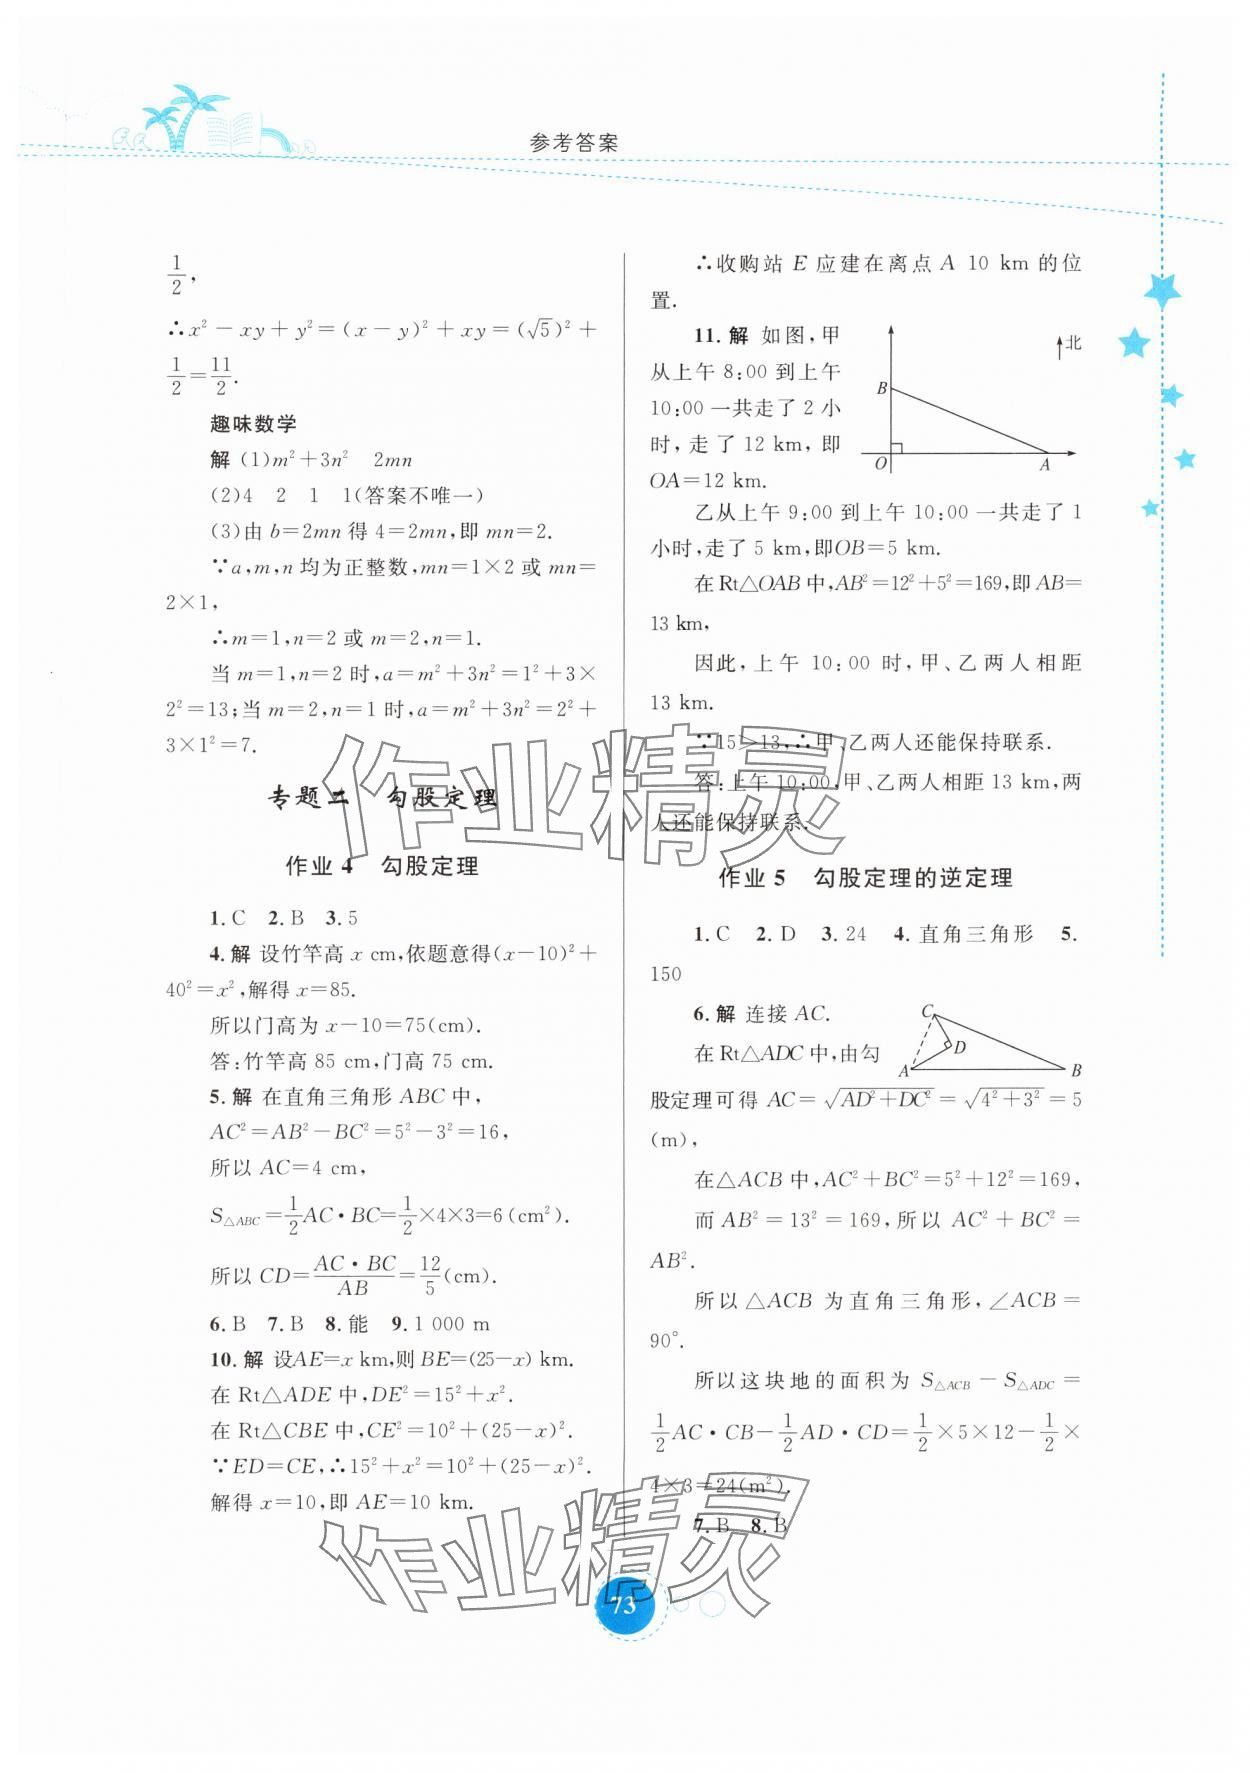 参考答案
1/2,
∴x²－xy＋y²＝(x－y)²＋xy＝(√5)²＋
1/2＝11/2.
趣味数学
解 (1)m²＋3n²　2mn
(2)4　2　1　1(答案不唯一)
(3)由 b＝2mn 得 4＝2mn,即 mn＝2.
∵a,m,n 均为正整数,mn＝1×2 或 mn＝
2×1,
∴m＝1,n＝2 或 m＝2,n＝1.
当 m＝1,n＝2 时,a＝m²＋3n²＝1²＋3×
2²＝13;当 m＝2,n＝1 时,a＝m²＋3n²＝2²＋
3×1²＝7.
专题二　勾股定理
作业 4　勾股定理
1.C　2.B　3.5
4.解 设竹竿高 x cm,依题意得(x－10)²＋
40²＝x²,解得 x＝85.
所以门高为 x－10＝75(cm).
答:竹竿高 85 cm,门高 75 cm.
5.解 在直角三角形 ABC 中,
AC²＝AB²－BC²＝5²－3²＝16,
所以 AC＝4 cm,
S△ABC＝1/2AC·BC＝1/2×4×3＝6(cm²).
所以 CD＝AC·BC/AB＝12/5(cm).
6.B　7.B　8.能　9.1 000 m
10.解 设AE＝x km,则 BE＝(25－x) km.
在 Rt△ADE 中,DE²＝15²＋x².
在 Rt△CBE 中,CE²＝10²＋(25－x)².
∵ED＝CE,∴15²＋x²＝10²＋(25－x)².
解得 x＝10,即 AE＝10 km.
∴收购站 E 应建在离点 A 10 km 的位
置.
11.解 如图,甲
从上午 8:00 到上午
10:00 一共走了 2 小
时,走了 12 km,即
OA＝12 km.
北
B
O
A
乙从上午 9:00 到上午 10:00 一共走了 1
小时,走了 5 km,即OB＝5 km.
在 Rt△OAB 中,AB²＝12²＋5²＝169,即 AB＝
13 km,
因此,上午 10:00 时,甲、乙两人相距
13 km.
∵15＞13,∴甲、乙两人还能保持联系.
答:上午 10:00,甲、乙两人相距 13 km,两
人还能保持联系.
作业 5　勾股定理的逆定理
1.C　2.D　3.24　4.直角三角形　5.
150
6.解 连接 AC.
在 Rt△ADC 中,由勾
C
D
A
B
股定理可得 AC＝√(AD²＋DC²)＝√(4²＋3²)＝5
(m),
在△ACB 中,AC²＋BC²＝5²＋12²＝169,
而 AB²＝13²＝169,所以 AC²＋BC²＝
AB².
所以△ACB 为直角三角形,∠ACB＝
90°.
所以这块地的面积为 S△ACB－S△ADC＝
1/2AC·CB－1/2AD·CD＝1/2×5×12－1/2×
4×3＝24(m²).
7.B　8.B
作业精灵
作业精灵
73